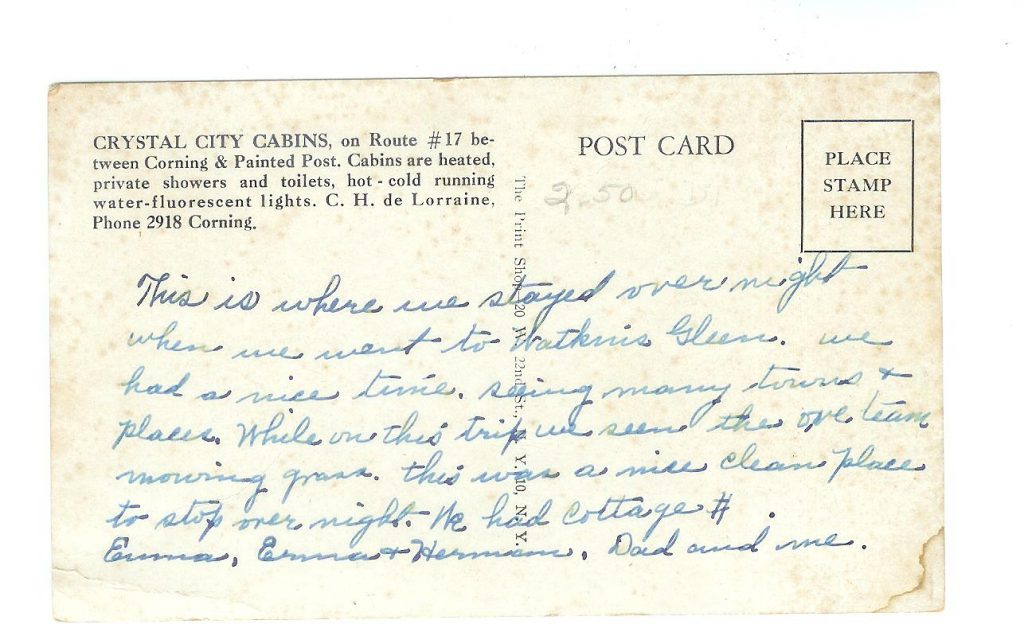 CRYSTAL CITY CABINS, on Route #17 be-
tween Corning & Painted Post. Cabins are heated,
private showers and toilets, hot - cold running
water-fluorescent lights. C. H. de Lorraine,
Phone 2918 Corning.
POST CARD
PLACE
STAMP
HERE
2.50
The Print Shop, 20 W. 22nd St., N. Y. 10, N. Y.
This is where we stayed over night
when we went to Watkins Gleen. we
had a nice time. seeing many towns +
places. While on this trip we seen the oxe team
mowing grass. this was a nice clean place
to stop over night. We had Cottage # .
Emma, Erma + Herman, Dad and me.